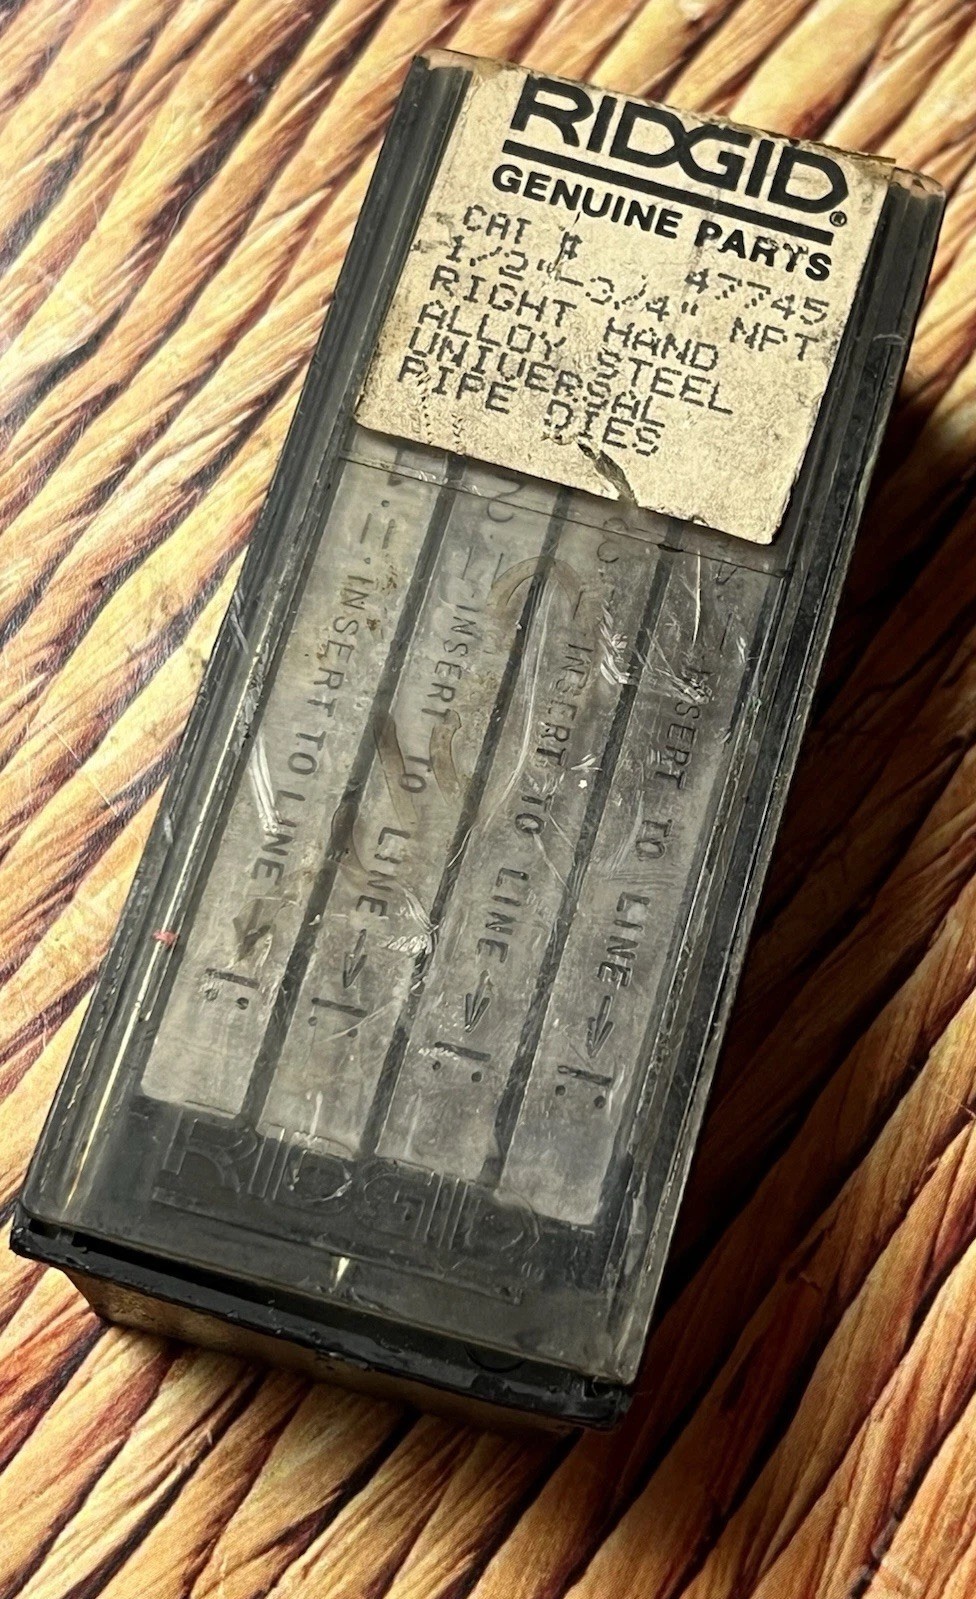 RIDGID®
GENUINE PARTS
CAT # 47745
1/2"-3/4" NPT
RIGHT HAND
ALLOY STEEL
UNIVERSAL
PIPE DIES
2
3
INSERT TO LINE
INSERT TO LINE
INSERT TO LINE
INSERT TO LINE
RIDGID